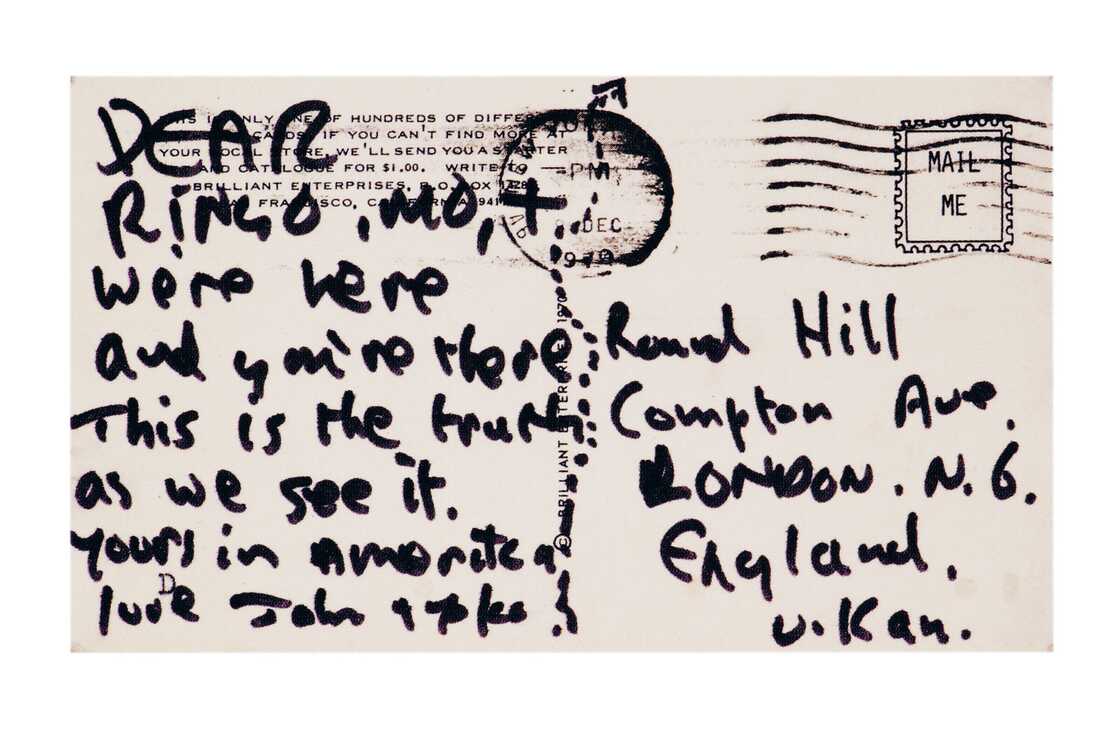 DEAR
RINGO, MO, +
were here
and you're there
This is the truth
as we see it.
yours in amerika
luvDe John + yoko
THIS IS ONLY ONE OF HUNDREDS OF DIFFERENT
CARDS. IF YOU CAN'T FIND MORE AT
YOUR LOCAL STORE, WE'LL SEND YOU A STARTER
AND CATALOGUE FOR $1.00. WRITE TO
BRILLIANT ENTERPRISES, P.O. BOX
SAN FRANCISCO, CALIFORNIA 941
PM
DEC
1970
MAIL
ME
© BRILLIANT ENTERPRISES 1970
Round Hill
Compton Ave.
LONDON. N.6.
England.
U.Kan.